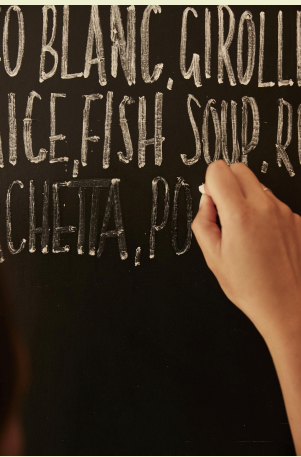 O BLANC, GIROLL
ICE, FISH SOUP, R
CHETTA, PO